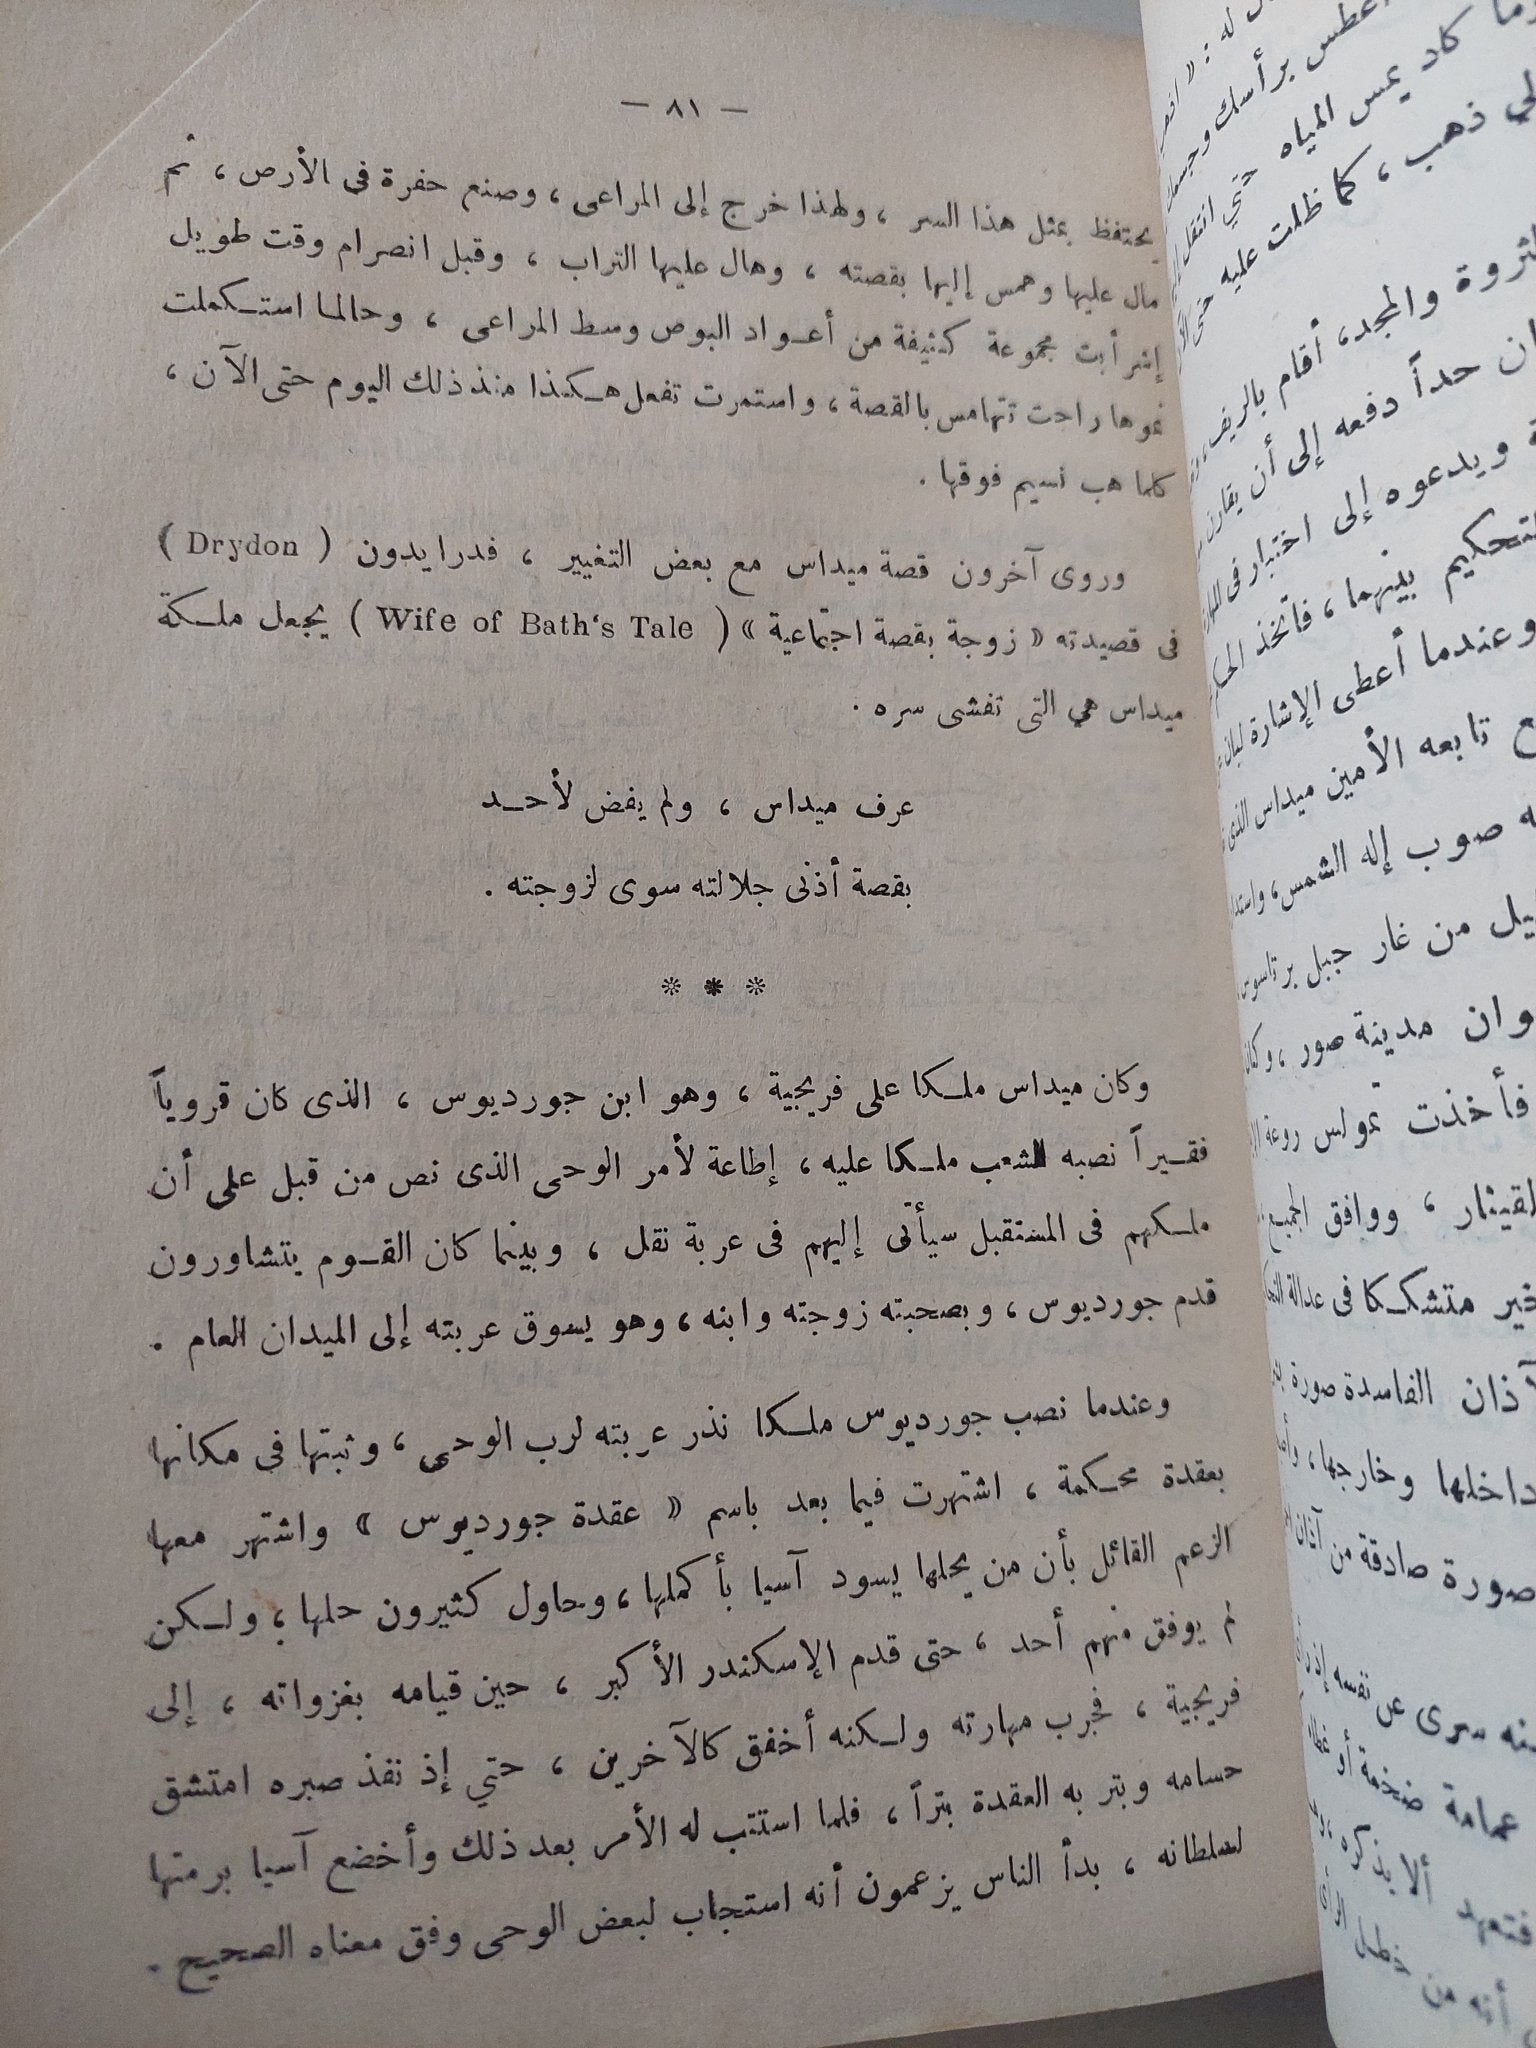 — ٨١ —
يحتفظ بمثل هذا السر ، ولهذا خرج إلى المراعى ، وصنع حفرة فى الأرض ، ثم
مال عليها وهمس إليها بقصته ، وهال عليها التراب ، وقبل انصرام وقت طويل
إشرأبت مجموعة كثيفة من أعواد البوص وسط المراعى ، وحالما استكملت
نموها راحت تتهامس بالقصة ، واستمرت تفعل هكذا منذ ذلك اليوم حتى الآن ،
كلما هب نسيم فوقها .
وروى آخرون قصة ميداس مع بعض التغيير ، فدرايدون ( Drydon )
فى قصيدته « زوجة بقصة اجتماعية » ( Wife of Bath‘s Tale ) يجعل ملكة
ميداس هي التى تفشى سره .
عرف ميداس ، ولم يفض لأحد
بقصة أذنى جلالته سوى لزوجته .
* * *
وكان ميداس ملكا على فريجية ، وهو ابن جورديوس ، الذى كان قروياً
فقيراً نصبه الشعب ملكا عليه ، إطاعة لأمر الوحى الذى نص من قبل على أن
ملكهم فى المستقبل سيأتى إليهم فى عربة نقل ، وبينما كان القوم يتشاورون
قدم جورديوس ، وبصحبته زوجته وابنه ، وهو يسوق عربته إلى الميدان العام .
وعندما نصب جورديوس ملكا نذر عربته لرب الوحى ، وثبتها فى مكانها
بعقدة محكمة ، اشتهرت فيما بعد باسم « عقدة جورديوس » واشتهر معها
الزعم القائل بأن من يحلها يسود آسيا بأكملها ، وحاول كثيرون حلها ، ولكن
لم يوفق منهم أحد ، حتى قدم الإسكندر الأكبر ، حين قيامه بغزواته ، إلى
فريجية ، فجرب مهارته ولكنه أخفق كالآخرين ، حتي إذ نفذ صبره امتشق
حسامه وبتر به العقدة بتراً ، فلما استتب له الأمر بعد ذلك وأخضع آسيا برمتها
لسلطانه ، بدأ الناس يزعمون أنه استجاب لبعض الوحى وفق معناه الصحيح .
له : «
أعطس برأسك وجسمك
كاد يمس المياه حتي انتقل
ذهب ، كما ظلت عليه حتى
والمجد، أقام بالريف،
حداً دفعه إلى أن يقارن
ويدعوه إلى اختبار فى
بينهما ، فاتخذ
وعندما أعطى الإشارة
تابعه الأمين ميداس الذى
صوب إله الشمس،
من غار جبل برناسوس
مدينة صور ،
فأخذت تمولس روعة
، ووافق الجميع
متشككا فى عدالة
الفاسدة صورة
داخلها وخارجها،
صورة صادقة من آذان
سرى عن نفسه إذ
عمامة ضخمة أو
ألا يذكره
فتعهد
من خطل